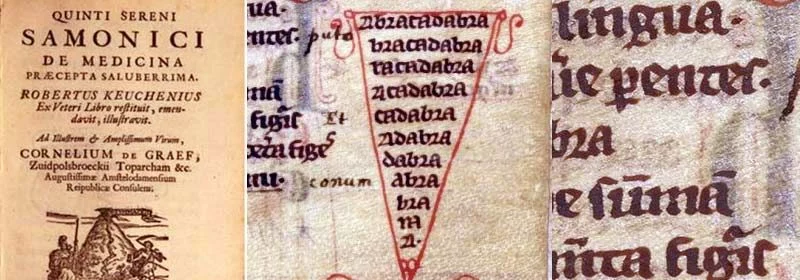 QUINTI SERENI
SAMONICI
DE MEDICINA
PRÆCEPTA SALUBERRIMA.
ROBERTUS KEUCHENIUS
Ex Veteri Libro restituit, emen-
davit, illustravit.
Ad Illustrem & Amplissimum Virum,
CORNELIUM DE GRAEF,
Zuidpolsbroeckii Toparcham &c.
Augustissimæ Amstelodamensium
Reipublicæ Consulem.
abracadabra
bracadabra
racadabra
acadabra
cadabra
adabra
dabra
abra
bra
ra
a.
conum
lingua.
pentes.
bra
e sūmā
figīs